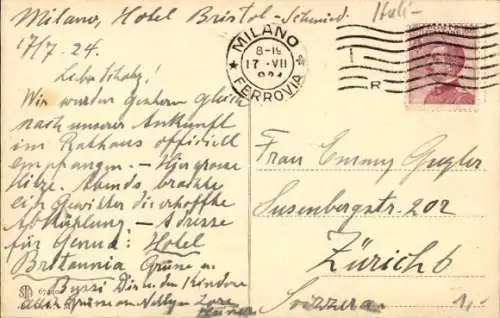 Milano, Hotel Bristol-Schmied.
17/7.24.
Wir wurden gestern gleich
nach unserer Ankunft
im Rathaus offiziell
empfangen. – Hier grosse
Hitze. Abends brachte
ein Gewitter die erhoffte
Abkühlung. – Adresse
für Genua: Hotel
Britannia Grüsse u.
Bussi Dir u. den Kindern
auch Grüsse an
MILANO
8-19
17 · VII
FERROVIA
R
Frau Emmy Gugler
Susenbergstr. 202
Zürich 6
Svizzera
1.-